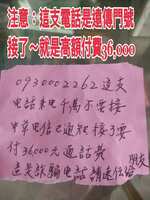 注意：這支電話是遠傳門號
接了～就是高額付費36,000
0930002262這支
電話來电千萬不要接
中華电信已通知接了要
付36000元通話費
這是詐騙电話請速傳給
朋友